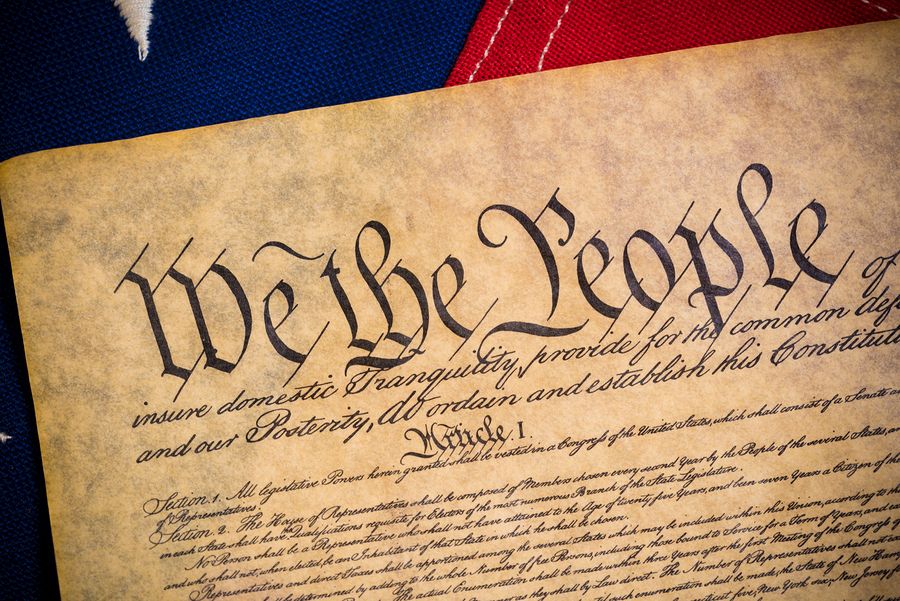 We the People of
insure domestic Tranquility, provide for the common
and our Posterity, do ordain and establish this
Article I.
Section 1. All legislative Powers herein granted shall be vested in a Congress of the United States, which shall consist of a Senate
of Representatives.
Section 2. The House of Representatives shall be composed of Members chosen every second Year by the People of the several States,
in each State shall have the Qualifications requisite for Electors of the most numerous Branch of the State Legislature.
No Person shall be a Representative who shall not have attained to the Age of twenty five Years, and been seven Years a Citizen of the
and who shall not, when elected, be an Inhabitant of that State in which he shall be chosen.
Representatives and direct Taxes shall be apportioned among the several States which may be included within this Union, according to
shall be determined by adding to the whole Number of free Persons, including those bound to Service for a Term of Years, and
The actual Enumeration shall be made within three Years after the first Meeting of the Congress of
as they shall by Law direct. The Number of Representatives shall not
such enumeration shall be made, the State of New
five, New York six, New Jersey